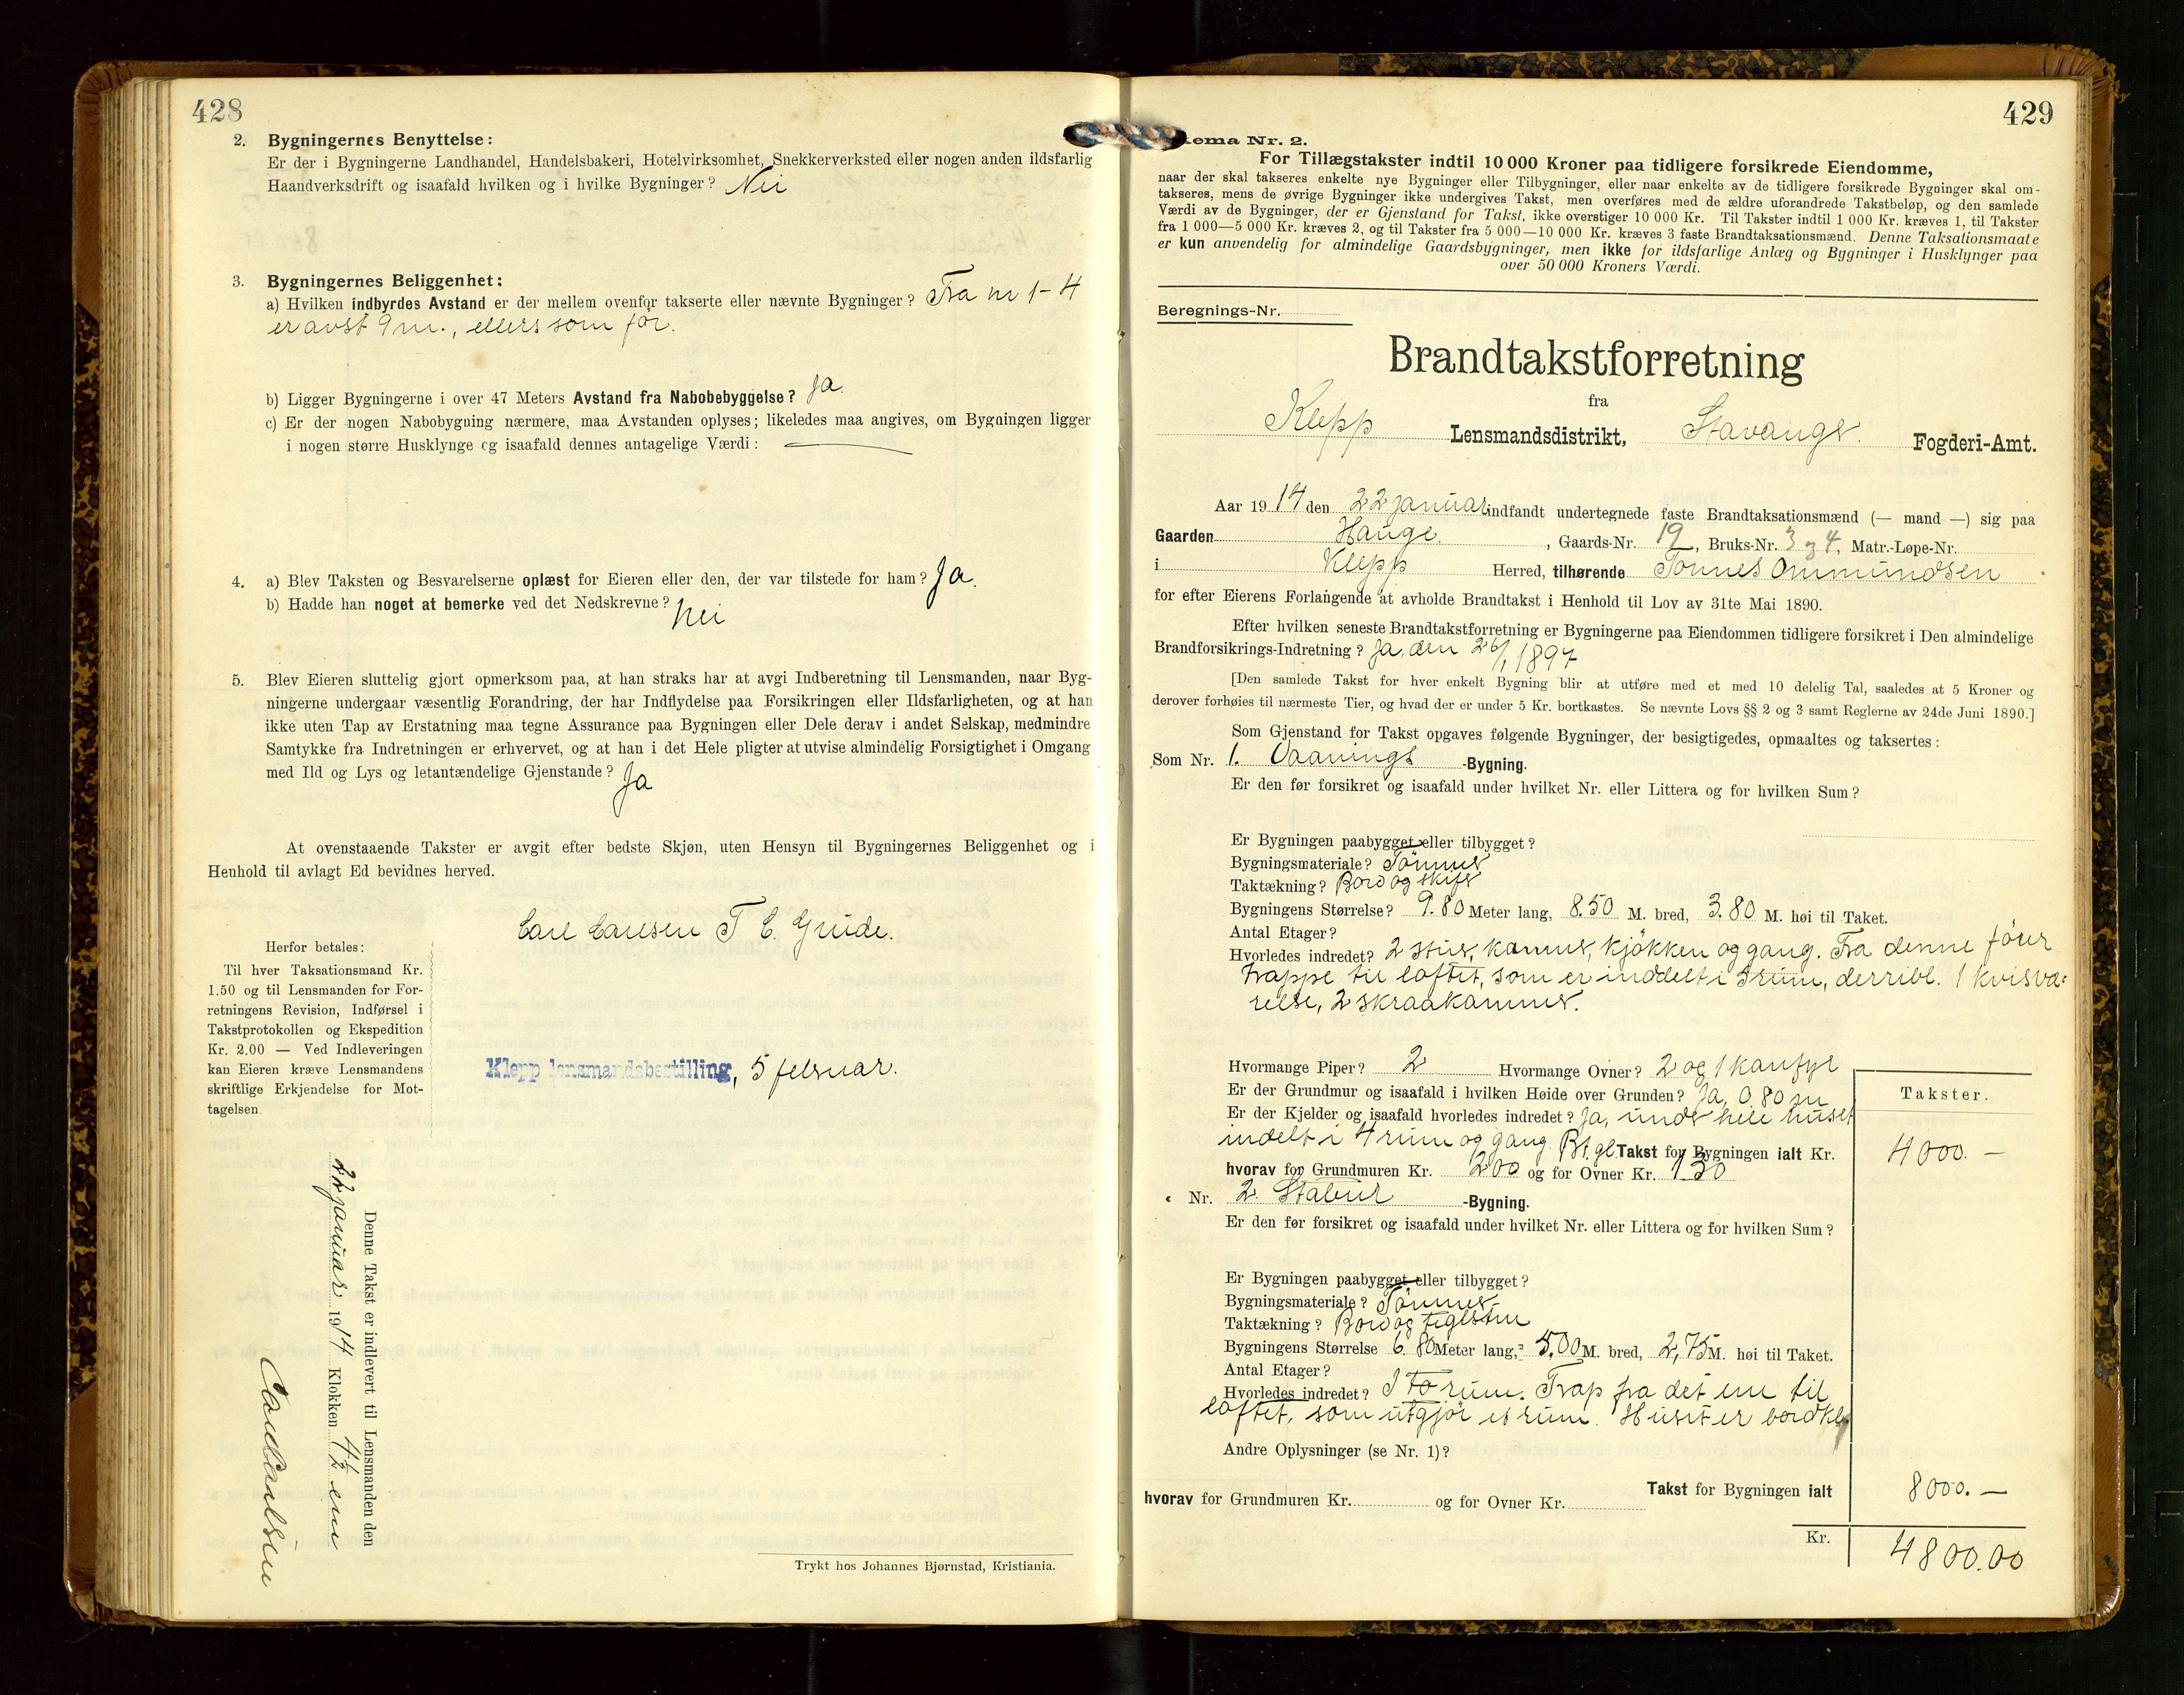 428
2. Bygningernes Benyttelse:
Er der i Bygningerne Landhandel, Handelsbakeri, Hotelvirksomhet, Snekkerverksted eller nogen anden ildsfarlig
Haandverksdrift og isaafald hvilken og i hvilke Bygninger? Nei
3. Bygningernes Beliggenhet:
a) Hvilken indbyrdes Avstand er der mellem ovenfor takserte eller nævnte Bygninger? Fra nr 1-4
er avst 9 m., ellers som før.
b) Ligger Bygningerne i over 47 Meters Avstand fra Nabobebyggelse? Ja.
c) Er der nogen Nabobygning nærmere, maa Avstanden oplyses; likeledes maa angives, om Bygningen ligger
i nogen større Husklynge og isaafald dennes antagelige Værdi: —
4. a) Blev Taksten og Besvarelserne oplæst for Eieren eller den, der var tilstede for ham? Ja.
b) Hadde han noget at bemerke ved det Nedskrevne? Nei
5. Blev Eieren sluttelig gjort opmerksom paa, at han straks har at avgi Indberetning til Lensmanden, naar Byg-
ningerne undergaar væsentlig Forandring, der har Indflydelse paa Forsikringen eller Ildsfarligheten, og at han
ikke uten Tap av Erstatning maa tegne Assurance paa Bygningen eller Dele derav i andet Selskap, medmindre
Samtykke fra Indretningen er erhvervet, og at han i det Hele pligter at utvise almindelig Forsigtighet i Omgang
med Ild og Lys og letantændelige Gjenstande? Ja
At ovenstaaende Takster er avgit efter bedste Skjøn, uten Hensyn til Bygningernes Beliggenhet og i
Henhold til avlagt Ed bevidnes herved.
Carl Carlsen T C Grude.
Herfor betales:
Til hver Taksationsmand Kr.
1.50 og til Lensmanden for For-
retningens Revision, Indførsel i
Takstprotokollen og Ekspedition
Kr. 2.00 — Ved Indleveringen
kan Eieren kræve Lensmandens
skriftlige Erkjendelse for Mot-
tagelsen.
Klepp lensmandsbestilling, 5 februar.
Denne Takst er indlevert til Lensmanden den
22 januar 1914 Klokken 4½ em
Carl Carlsen
Trykt hos Johannes Bjørnstad, Kristiania.
429
ema Nr. 2.
For Tillægstakster indtil 10 000 Kroner paa tidligere forsikrede Eiendomme,
naar der skal takseres enkelte nye Bygninger eller Tilbygninger, eller naar enkelte av de tidligere forsikrede Bygninger skal om-
takseres, mens de øvrige Bygninger ikke undergives Takst, men overføres med de ældre uforandrede Takstbeløp, og den samlede
Værdi av de Bygninger, der er Gjenstand for Takst, ikke overstiger 10 000 Kr. Til Takster indtil 1 000 Kr. kræves 1, til Takster
fra 1 000—5 000 Kr. kræves 2, og til Takster fra 5 000—10 000 Kr. kræves 3 faste Brandtaksationsmænd. Denne Taksationsmaate
er kun anvendelig for almindelige Gaardsbygninger, men ikke for ildsfarlige Anlæg og Bygninger i Husklynger paa
over 50 000 Kroners Værdi.
Beregnings-Nr.
Brandtakstforretning
fra
Klepp Lensmandsdistrikt, Stavanger Fogderi-Amt.
Aar 1914 den 22 januar indfandt undertegnede faste Brandtaksationsmænd (— mand —) sig paa
Gaarden Hauge, Gaards-Nr. 19, Bruks-Nr. 3 og 4, Matr.-Løpe-Nr.
i Klepp Herred, tilhørende Tønnes Ommundsen
for efter Eierens Forlangende at avholde Brandtakst i Henhold til Lov av 31te Mai 1890.
Efter hvilken seneste Brandtakstforretning er Bygningerne paa Eiendommen tidligere forsikret i Den almindelige
Brandforsikrings-Indretning? Ja, den 26/1 1897
[Den samlede Takst for hver enkelt Bygning blir at utføre med et med 10 delelig Tal, saaledes at 5 Kroner og
derover forhøies til nærmeste Tier, og hvad der er under 5 Kr. bortkastes. Se nævnte Lovs §§ 2 og 3 samt Reglerne av 24de Juni 1890.]
Som Gjenstand for Takst opgaves følgende Bygninger, der besigtigedes, opmaaltes og taksertes:
Som Nr. 1. Vaanings -Bygning.
Er den før forsikret og isaafald under hvilket Nr. eller Littera og for hvilken Sum?
Er Bygningen paabygget eller tilbygget?
Bygningsmateriale? Tömmer
Taktækning? Bord og skifer
Bygningens Størrelse? 9.80 Meter lang, 8.50 M. bred, 3.80 M. høi til Taket.
Antal Etager?
Hvorledes indredet? 2 stuer, kammer, kjökken og gang. Fra denne förer
trappe til loftet, som er inddelt i 3 rum, derribl. 1 kvisvæ-
relse, 2 skraakammer.
Hvormange Piper? 2 Hvormange Ovner? 2 og 1 komfyr
Er der Grundmur og isaafald i hvilken Høide over Grunden? Ja, 0.80 m
Takster.
Er der Kjelder og isaafald hvorledes indredet? Ja, under hele huset
indelt i 4 rum og gang. Bt. gl. Takst for Bygningen ialt Kr. 4000.—
hvorav for Grundmuren Kr. 200 og for Ovner Kr. 130
Nr. 2. Stabur -Bygning.
Er den før forsikret og isaafald under hvilket Nr. eller Littera og for hvilken Sum?
Er Bygningen paabygget eller tilbygget?
Bygningsmateriale? Tömmer
Taktækning? Bord og teglsten
Bygningens Størrelse 6.80 Meter lang, 5,00 M. bred, 2,75 M. høi til Taket.
Antal Etager?
Hvorledes indredet? I to rum. Trap fra det ene til
loftet, som utgjör et rum. Huset er bordkl
Andre Oplysninger (se Nr. 1)?
Takst for Bygningen ialt 8000.—
hvorav for Grundmuren Kr. og for Ovner Kr.
Kr. 4800.00